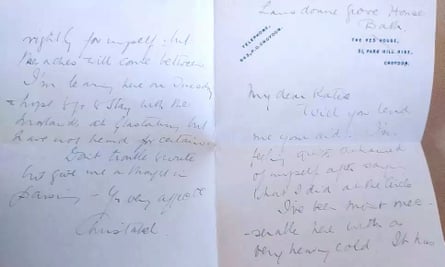 Lansdowne Grove House
Bath
TELEPHONE,
THE RED HOUSE,
21, PARK HILL RISE,
CROYDON.
My dear Katie
Will you lend
me your aid. I'm
feeling quite ashamed
of myself after saying
what I did at the
I've been most mise-
-rable here with a
very heavy cold It has
rightly for myself - but
the aches will come between
I'm leaving here on Tuesday
& hope to go & stay with the
at Glastonbury but
have not heard for certain
Don't trouble to write
but give me a thought in
passing - Yr very affecte
Christabel.